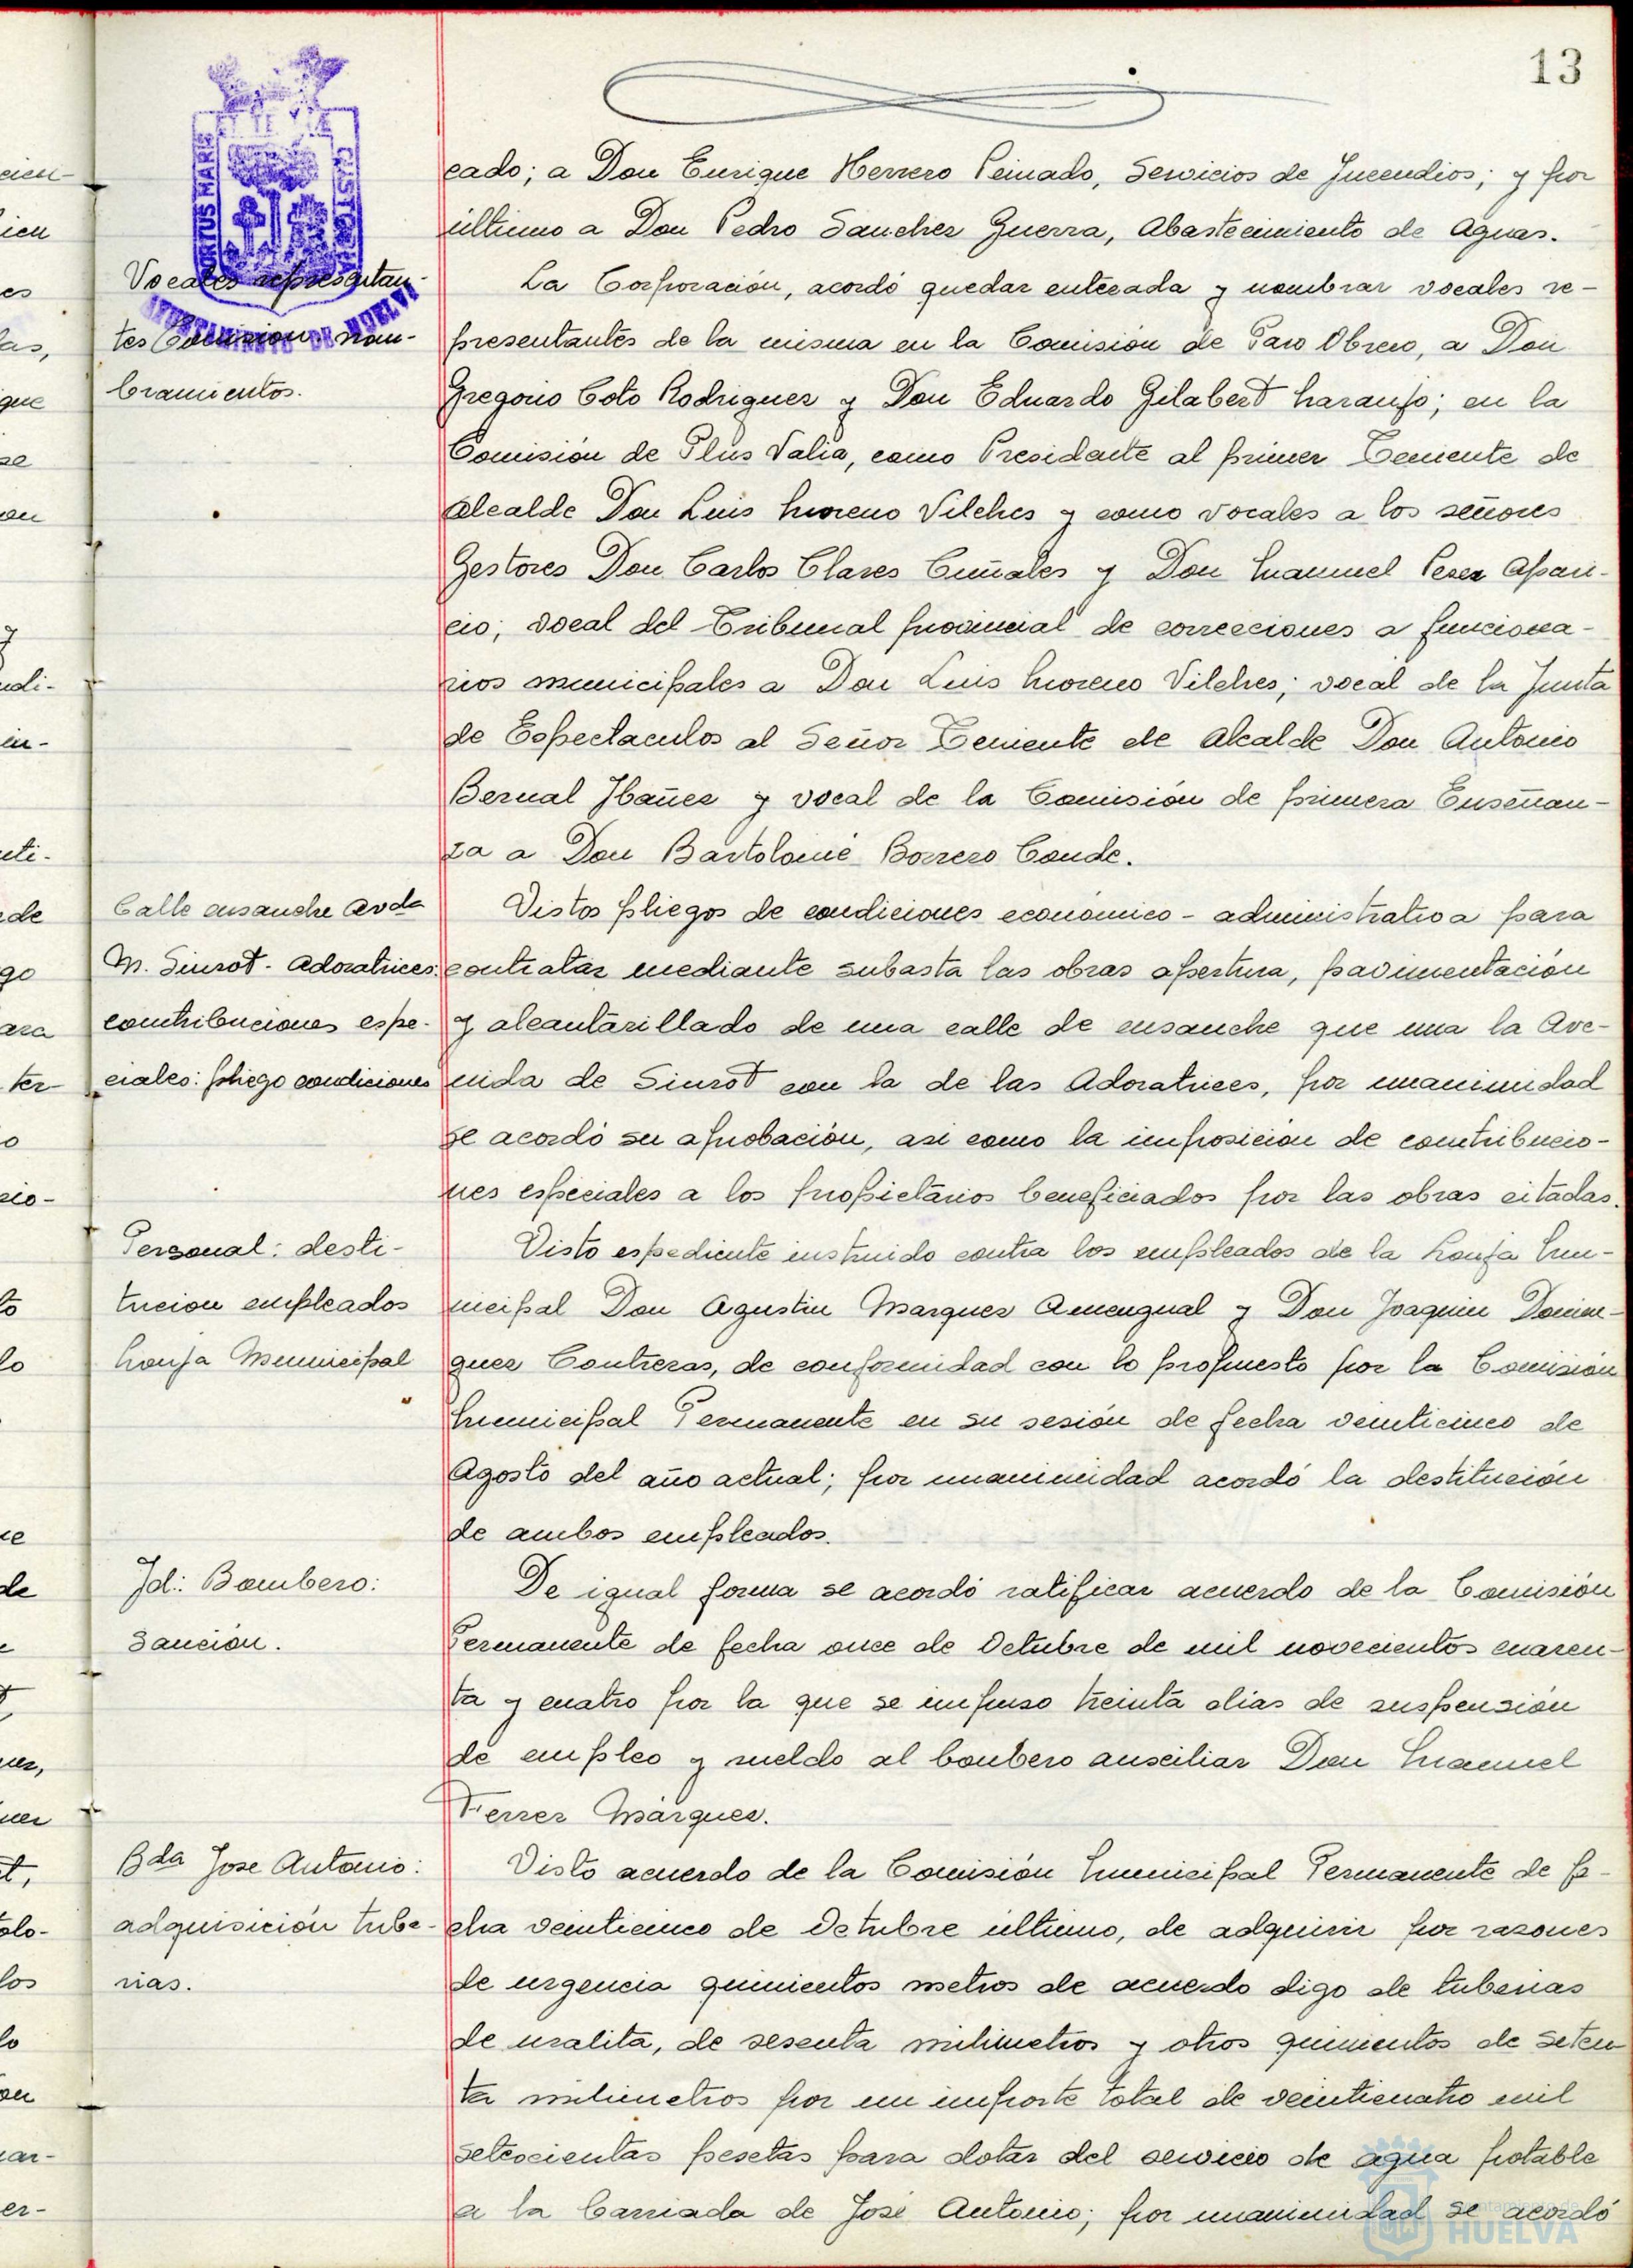 13
cado; a Don Enrique Herrero Peinado, Servicios de Incendios; y por
último a Don Pedro Sanchez Guerra, Abastecimiento de Aguas.
Vocales represntan-
tes Comision: nom-
bramientos.
La Corporación, acordó quedar enterada y nombrar vocales re-
presentantes de la misma en la Comisión de Paro Obrero, a Don
Gregorio Coto Rodriguez y Don Eduardo Gilabert Naranjo; en la
Comisión de Plus Valia, como Presidente al primer Teniente de
Alcalde Don Luis Moreno Vilches y como vocales a los señores
Gestores Don Carlos Clares Cuñales y Don Manuel Perez Apari-
cio; vocal del Tribunal provincial de correcciones a funciona-
rios municipales a Don Luis Moreno Vilches; vocal de la Junta
de Espectaculos al Señor Teniente de Alcalde Don Antonio
Bernal Ibañez y vocal de la Comisión de primera Enseñan-
za a Don Bartolomé Borrero Conde.
Calle ensanche Avda
M. Siurot - Adoratrices:
contribuciones espe-
ciales: pliego condiciones
Vistos pliegos de condiciones económico - administrativa para
contratar mediante subasta las obras apertura, pavimentación
y alcantarillado de una calle de ensanche que una la Ave-
nida de Siurot con la de las Adoratrices, por unanimidad
se acordó su aprobación, asi como la imposición de contribucio-
nes especiales a los propietarios beneficiados por las obras citadas.
Personal: desti-
tucion empleados
Lonja Municipal
Visto espediente instruido contra los empleados de la Lonja Mu-
nicipal Don Agustin Marquez Amengual y Don Joaquin Domin-
guez Contreras, de conformidad con lo propuesto por la Comisión
Municipal Permanente en su sesión de fecha veinticinco de
Agosto del año actual; por unanimidad acordó la destitución
de ambos empleados.
Id.: Bombero:
Sanción.
De igual forma se acordó ratificar acuerdo de la Comisión
Permanente de fecha once de Octubre de mil novecientos cuaren-
ta y cuatro por la que se impuso treinta dias de suspensión
de empleo y sueldo al bombero ausciliar Don Manuel
Ferrer Márquez.
Bda Jose Antonio:
adquisición tube-
rias.
Visto acuerdo de la Comisión Municipal Permanente de fe-
cha veinticinco de Octubre último, de adquirir por razones
de urgencia quinientos metros de acuerdo digo de tuberias
de uralita, de sesenta milimetros y otros quinientos de seten-
ta milimetros por un importe total de veinticuatro mil
setecientas pesetas para dotar del servicio de agua potable
a la barriada de José Antonio; por unanimidad se acordó
AYUNTAMIENTO DE HUELVA
PORTUS MARIS
ET TERRAE
CUSTODIA
Ayuntamiento de
HUELVA